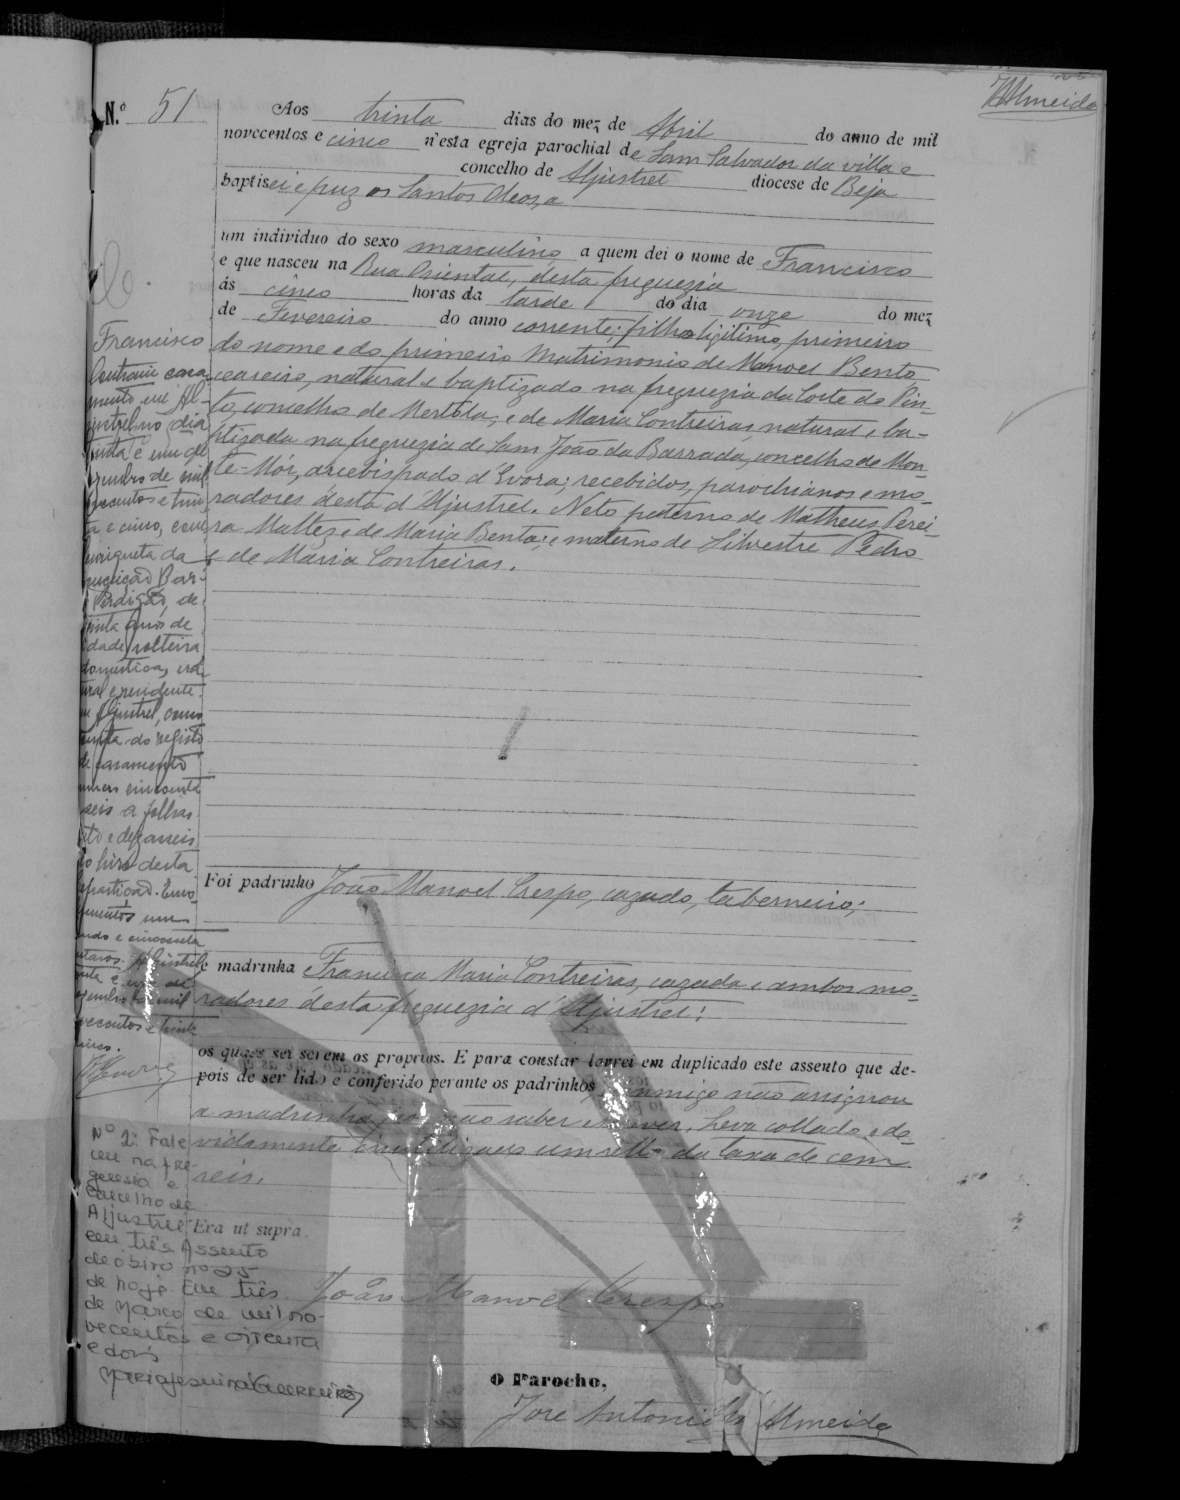 Almeida
N.º 51
Aos trinta dias do mez de Abril do anno de mil
novecentos e cinco n'esta egreja parochial de Sam Salvador da villa e
concelho de Aljustrel diocese de Beja
baptisei e puz os Santos Oleos, a
um individuo do sexo masculino a quem dei o nome de Francisco
e que nasceu na Rua Oriental, désta freguezia
ás cinco horas da tarde do dia onze do mez
de Fevereiro do anno corrente; filho ligitimo, primeiro
do nome e do primeiro Matrimonio de Manoel Bento
natural e baptizado na freguezia da Corte do Pin-
to, concelho de Mertola; e de Maria Contreiras natural e ba-
ptizada na freguezia de Sam João da Barrada, concelho de Mon-
te-Mór, arcebispado d'Evora; recebidos, parochianos e mo-
radores désta d'Aljustrel. Neto paterno de Matheus Perei-
ra Maltez e de Maria Benta; e materno de Silvestre Pedro
e de Maria Contreiras.
Foi padrinho João Manoel Crespo, cazado, taberneiro;
e madrinha Francisca Maria Contreiras, cazada e ambos mo-
radores désta freguezia d'Aljustrel;
os quaes sei serem os proprios. E para constar lavrei em duplicado este assento que de-
pois de ser lido e conferido perante os padrinhos, commigo não assignou
a madrinha por não saber escrever. Leva collado e de-
vidamente inutilisado um sello da taxa de cem
reis.
Era ut supra.
João Manoel Crespo
O Parocho,
José Antonio Almeida
Francisco
Contraiu casa-
mento em Al-
justrel no dia
trinta e um de
dezembro de mil
novecentos e trin-
ta e cinco, com
da
Perdigão, de
anos de
idade, solteira
domestica, na-
tural e residente
em Aljustrel, como
consta do registo
de casamento
seis a folhas
cento e dezasseis
do livro desta
Nº 2: Fale-
ceu na fre-
guesia e
concelho de
Aljustrel
em três Assento
de óbito nº 25
de hoje. Em três
de Março de mil no-
vecentos e oitenta
e dois